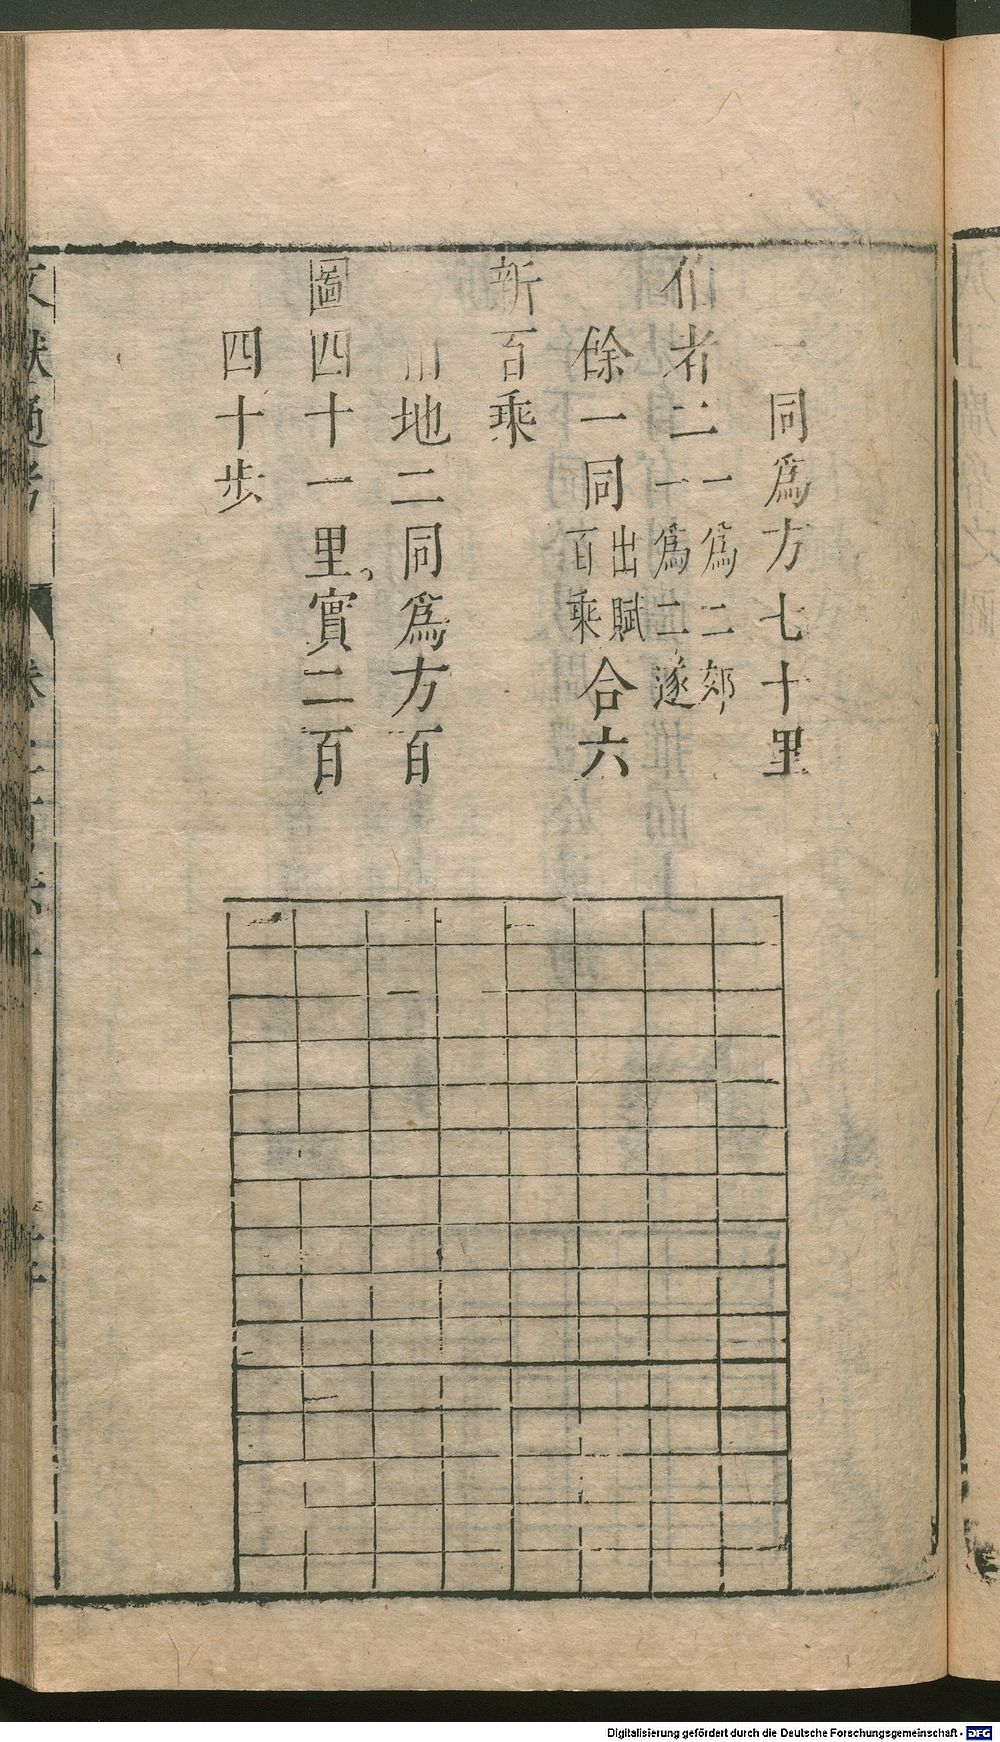 一同爲方七十里
伯者二一爲二郊
一爲二遂
餘一同出賦
百乘合六
新百乘
地二同爲方百
圖四十一里實二百
四十步
文獻通考
Digitalisierung gefördert durch die Deutsche Forschungsgemeinschaft - DFG